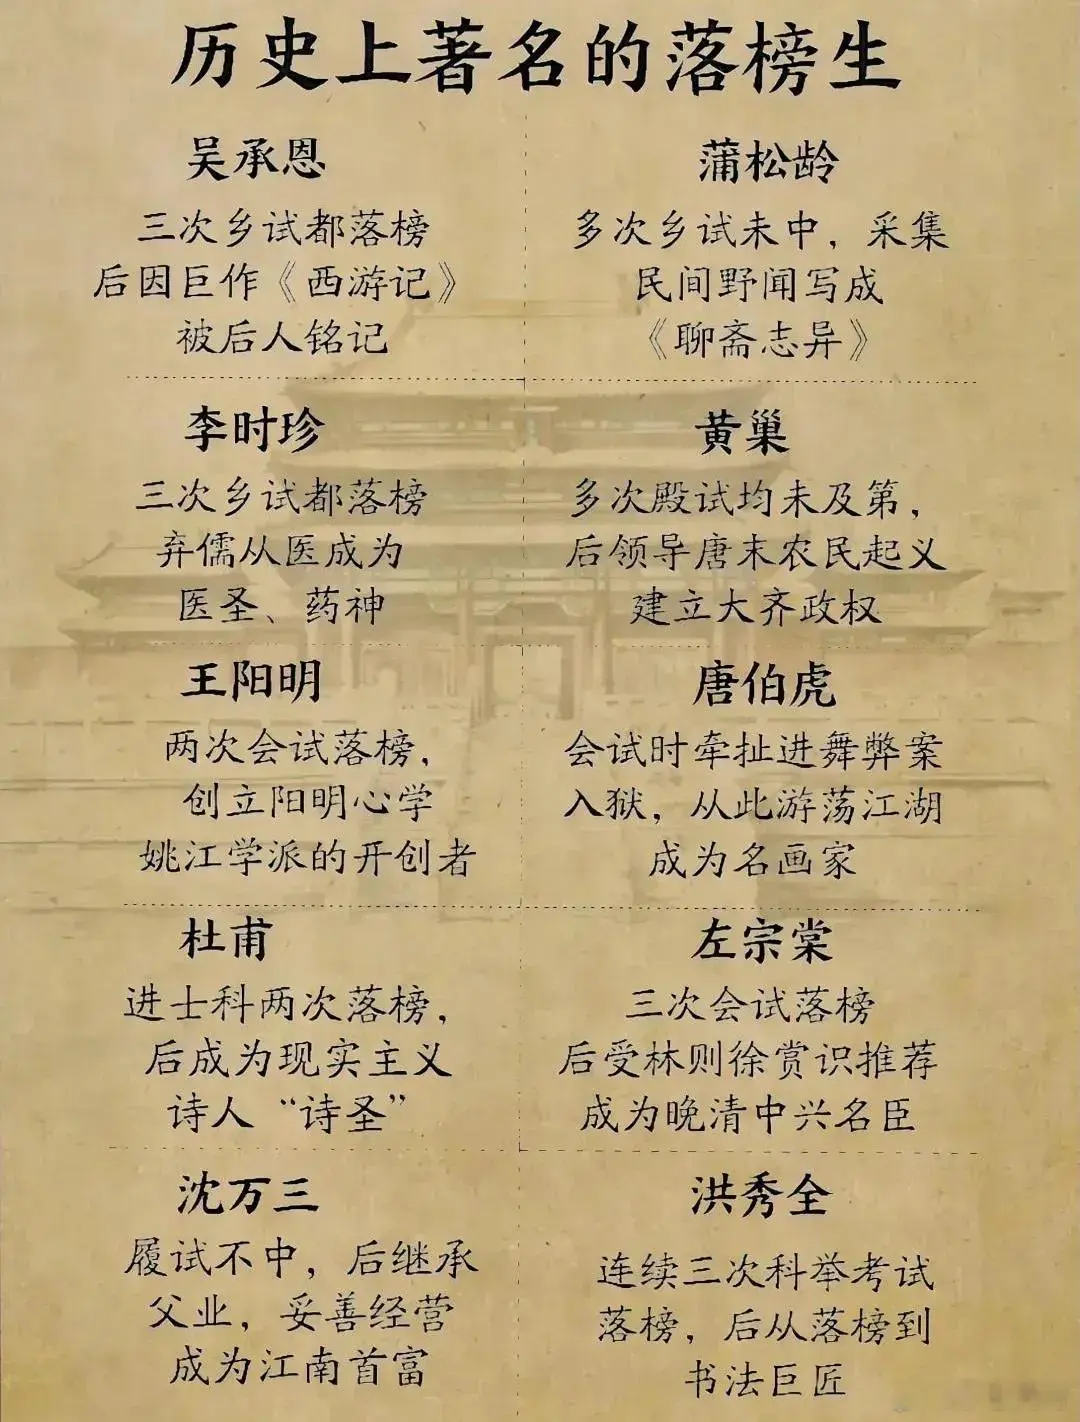 历史上著名的落榜生
吴承恩
三次乡试都落榜
后因巨作《西游记》
被后人铭记
蒲松龄
多次乡试未中，采集
民间野闻写成
《聊斋志异》
李时珍
三次乡试都落榜
弃儒从医成为
医圣、药神
黄巢
多次殿试均未及第，
后领导唐末农民起义
建立大齐政权
王阳明
两次会试落榜，
创立阳明心学
姚江学派的开创者
唐伯虎
会试时牵扯进舞弊案
入狱，从此游荡江湖
成为名画家
杜甫
进士科两次落榜，
后成为现实主义
诗人“诗圣”
左宗棠
三次会试落榜
后受林则徐赏识推荐
成为晚清中兴名臣
沈万三
履试不中，后继承
父业，妥善经营
成为江南首富
洪秀全
连续三次科举考试
落榜，后从落榜到
书法巨匠